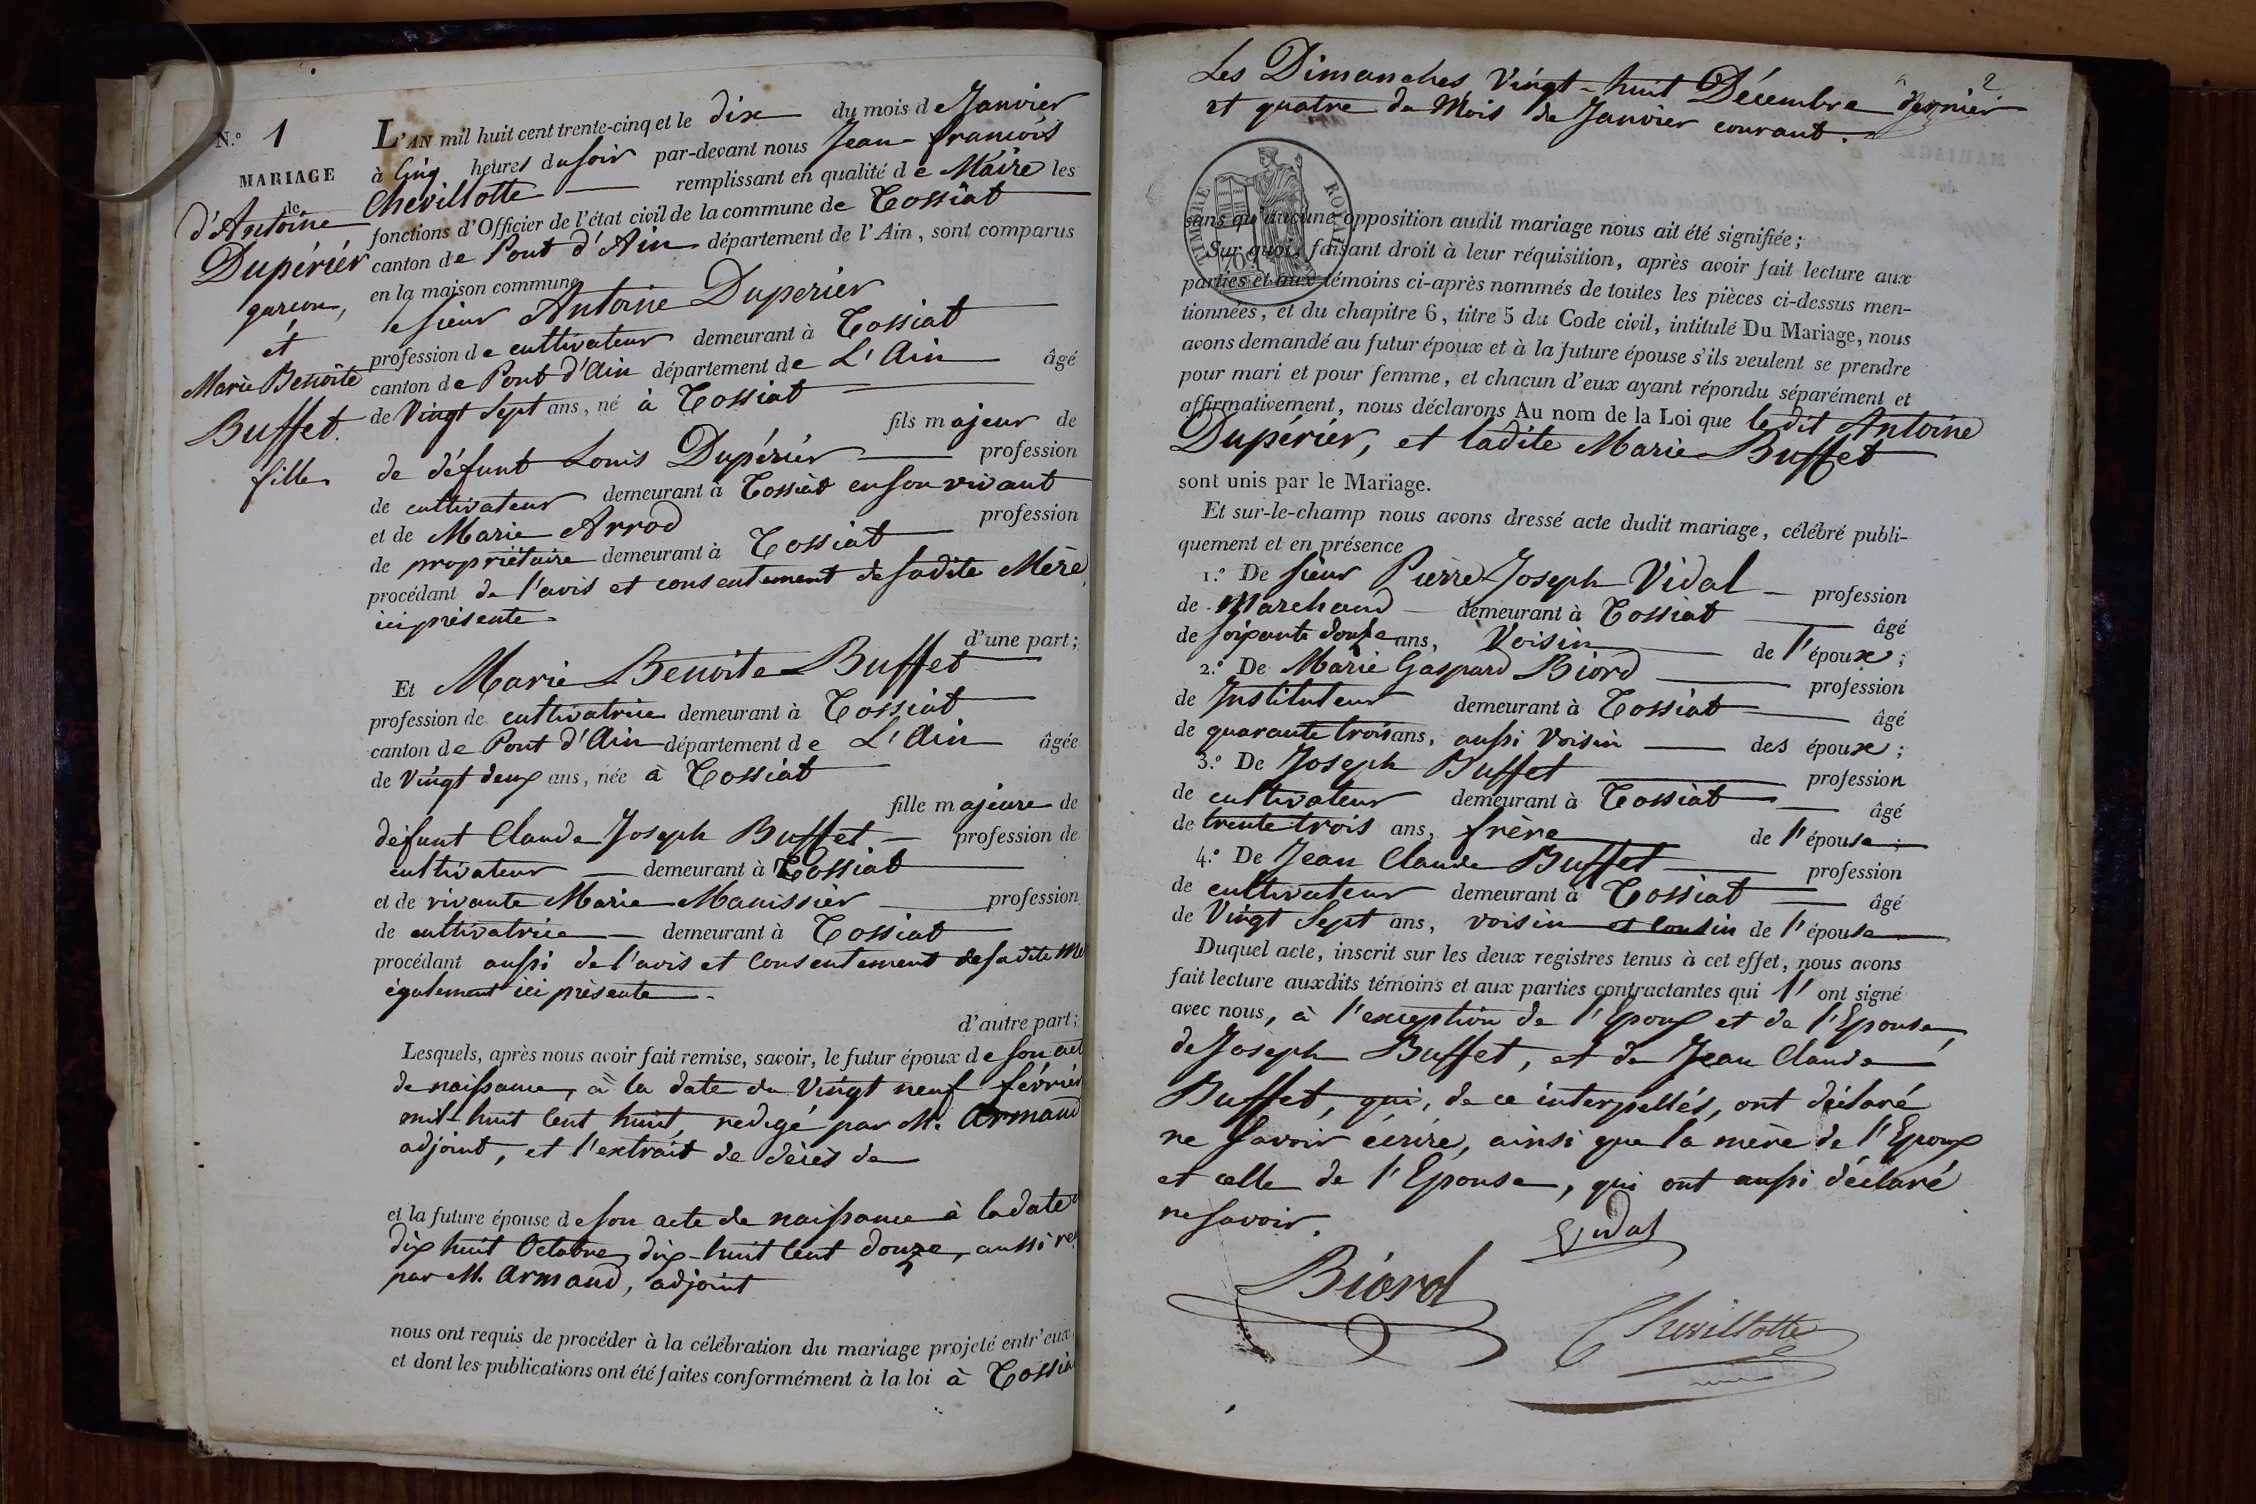 N.o 1
MARIAGE
de
d'Antoine
Dupérier
garcon,
et
Marie Benoite
Buffet.
fille
L'AN mil huit cent trente-cinq et le dix du mois de Janvier
à Cinq heures du soir par-devant nous Jean francois
Chevillotte remplissant en qualité de Maire les
fonctions d'Officier de l'état civil de la commune de Tossiat
canton de Pont d'Ain département de l'Ain, sont comparus
en la maison commune
sieur Antoine Duperier
profession de cultivateur demeurant à Tossiat
canton de Pont d'Ain département de L'Ain âgé
de Vingt Sept ans, né à Tossiat
fils majeur de
de défunt Louis Dupérier profession
de cultivateur demeurant à Tossiat en son vivant
et de Marie Arrod profession
de propriétaire demeurant à Tossiat
procédant de l'avis et consentement de sadite Mère,
ici présente
d'une part;
Et Marie Benoite Buffet
profession de cultivatrice demeurant à Tossiat
canton de Pont d'Ain département de L'Ain âgée
de Vingt deux ans, née à Tossiat
fille majeure de
défunt Claude Joseph Buffet profession de
cultivateur demeurant à Tossiat
et de vivante Marie Manissier profession
de cultivatrice demeurant à Tossiat
procédant aussi de l'avis et Consentement de sadite Me
également ici présente.
d'autre part;
Lesquels, après nous avoir fait remise, savoir, le futur époux de son act
de naissance, à la date du Vingt neuf février
mil huit Cent huit, redigé par M. Armand
adjoint, et l'extrait de décès de
et la future épouse de son acte de naissance à la date d
dix huit Octobre dix-huit Cent douze, aussi re
par M. Armand, adjoint
nous ont requis de procéder à la célébration du mariage projeté entr'eux
et dont les publications ont été faites conformément à la loi à Tossia
2
Les Dimanches Vingt-huit Décembre dernier
et quatre du Mois de Janvier courant.
TIMBRE ROYAL
sans qu'aucune opposition audit mariage nous ait été signifiée;
Sur quoi, faisant droit à leur réquisition, après avoir fait lecture aux
parties et aux témoins ci-après nommés de toutes les pièces ci-dessus men-
tionnées, et du chapitre 6, titre 5 du Code civil, intitulé Du Mariage, nous
avons demandé au futur époux et à la future épouse s'ils veulent se prendre
pour mari et pour femme, et chacun d'eux ayant répondu séparément et
affirmativement, nous déclarons Au nom de la Loi que ledit Antoine
Dupérier, et ladite Marie Buffet
sont unis par le Mariage.
Et sur-le-champ nous avons dressé acte dudit mariage, célébré publi-
quement et en présence
1.o De sieur Pierre Joseph Vidal profession
de Marchand demeurant à Tossiat âgé
de soixante douze ans, Voisin de l'époux;
2.o De Marie Gaspard Biord profession
de Instituteur demeurant à Tossiat âgé
de quarante trois ans, aussi Voisin des époux;
3.o De Joseph Buffet profession
de cultivateur demeurant à Tossiat âgé
de trente trois ans, frère de l'épouse;
4.o De Jean Claude Buffet profession
de cultivateur demeurant à Tossiat âgé
de Vingt Sept ans, voisin et Cousin de l'épouse
Duquel acte, inscrit sur les deux registres tenus à cet effet, nous avons
fait lecture auxdits témoins et aux parties contractantes qui l' ont signé
avec nous, à l'exception de l'Epoux et de l'Epouse,
de Joseph Buffet, et de Jean Claude
Buffet, qui, de ce interpellés, ont déclaré
ne Savoir écrire, ainsi que la mère de l'Epoux
et celle de l'Epouse, qui ont aussi déclaré
ne Savoir.
Vidal
Biord
Chevillotte